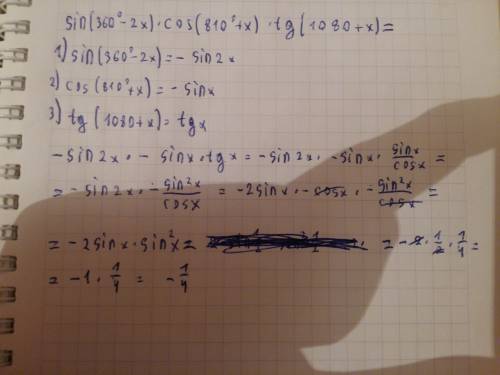 sin(360°-2x)·cos(810°+x)·tg(1080+x)=
1) sin(360°-2x)=-sin2x
2) cos(810°+x)=-sinx
3) tg(1080+x)=tgx
-sin2x·-sinx·tgx=-sin2x·-sinx·sinx/cosx=
=-sin2x·-sin²x/cosx=-2sinx·-cosx·-sin²x/cosx=
=-2sinx·sin²x= =-2·1/2·1/4=
=-1·1/4=-1/4